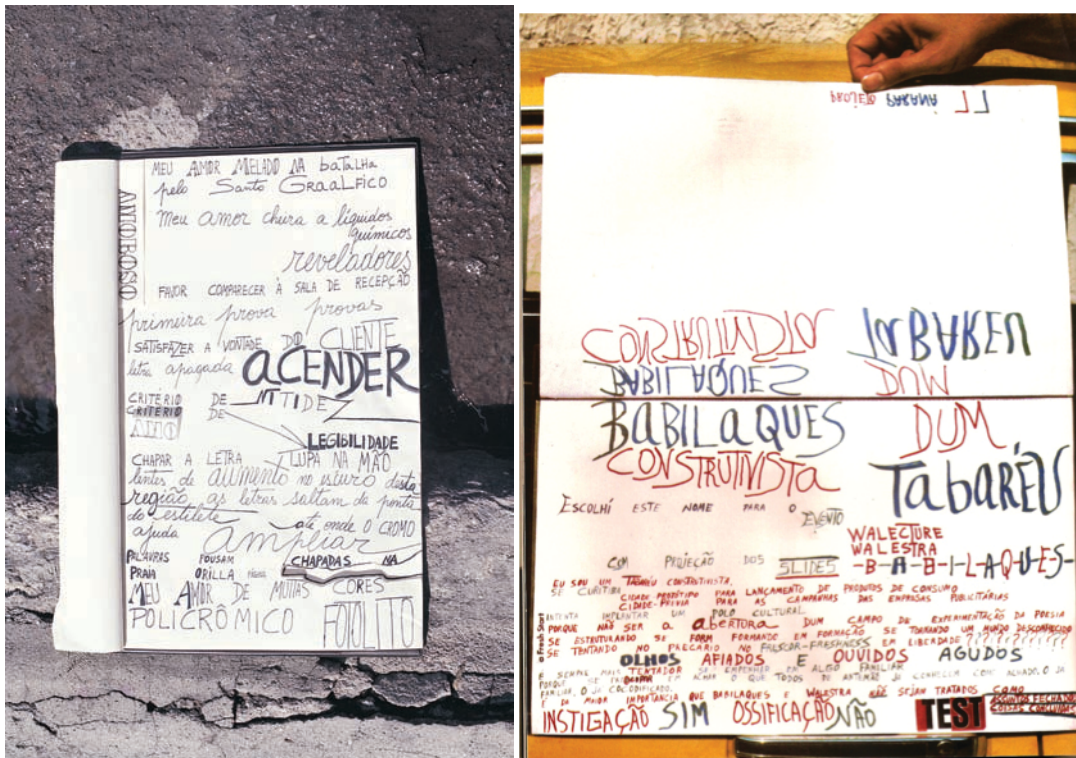 AMOROSO
MEU AMOR MELADO NA batalha
pelo Santo GRaaLFICO
Meu amor cheira a líquidos
químicos
reveladores
FAVOR COMPARECER À SALA DE RECEPÇÃO
primeira prova provas
SATISFAZER A VONTADE DO CLIENTE
letra apagada aCENDER
CRITÉRIO DE NITIDEZ
CRITÉRIO DE
LEGIBILIDADE
CHAPAR A LETRA LUPA NA MÃO
lentes de aumento no escuro desta
região as letras saltam da ponta
do estilete até onde o CROMO
ajuda ampliar
PALAVRAS POUSAM CHAPADAS NA
PRAIA ORILLA
MEU AMOR DE MUITAS CORES
POLICRÔMICO FOTOLITO
PROJETO PARANA
CONSTRUTIVISTA
BABILAQUES DUM
BABILaQUES DUM
CONSTRUTIVISTA TabARÉU
ESCOLHI ESTE NOME PARA O EVENTO
WALECTURE
WALESTRA
COM PROJEÇÃO DOS SLIDES -B-A-B-I-L-A-Q-U-E-S-
EU SOU UM TABARÉU CONSTRUTIVISTA.
SE CURITIBA CIDADE-PROTÓTIPO PARA LANÇAMENTO DE PRODUTOS DE CONSUMO
CIDADE-PROVA PARA AS CAMPANHAS DAS EMPRESAS PUBLICITÁRIAS
INTENTA IMPLANTAR UM POLO CULTURAL
PORQUE NÃO SER A abERTURA DUM CAMPO DE EXPERIMENTAÇÃO DA POESIA
SE ESTRUTURANDO SE FORM FORMANDO EM FORMAÇÃO SE TORNANDO UM MUNDO DESCONHECIDO
SE TENTANDO NO PRECÁRIO NO FRESCOR-FRESHNESS EM LIBERDADE ????????????
o Fresh Start
OLHOS AFIADOS E OUVIDOS AGUDOS
É SEMPRE MAIS TENTADOR SE EMPENHAR EM ALGO FAMILIAR
PORQUE SE EM ACHAR O QUE TODOS DE ANTEMÃO JÁ CONHECEM COMO ACHADO. O JÁ
FAMILIAR, O JÁ COCODIFICADO.
É DA MAIOR IMPORTÂNCIA QUE BABILAQUES E WALESTRA NÃO SEJAM TRATADOS COMO
INSTIGAÇÃO SIM OSSIFICAÇÃO NÃO TEST